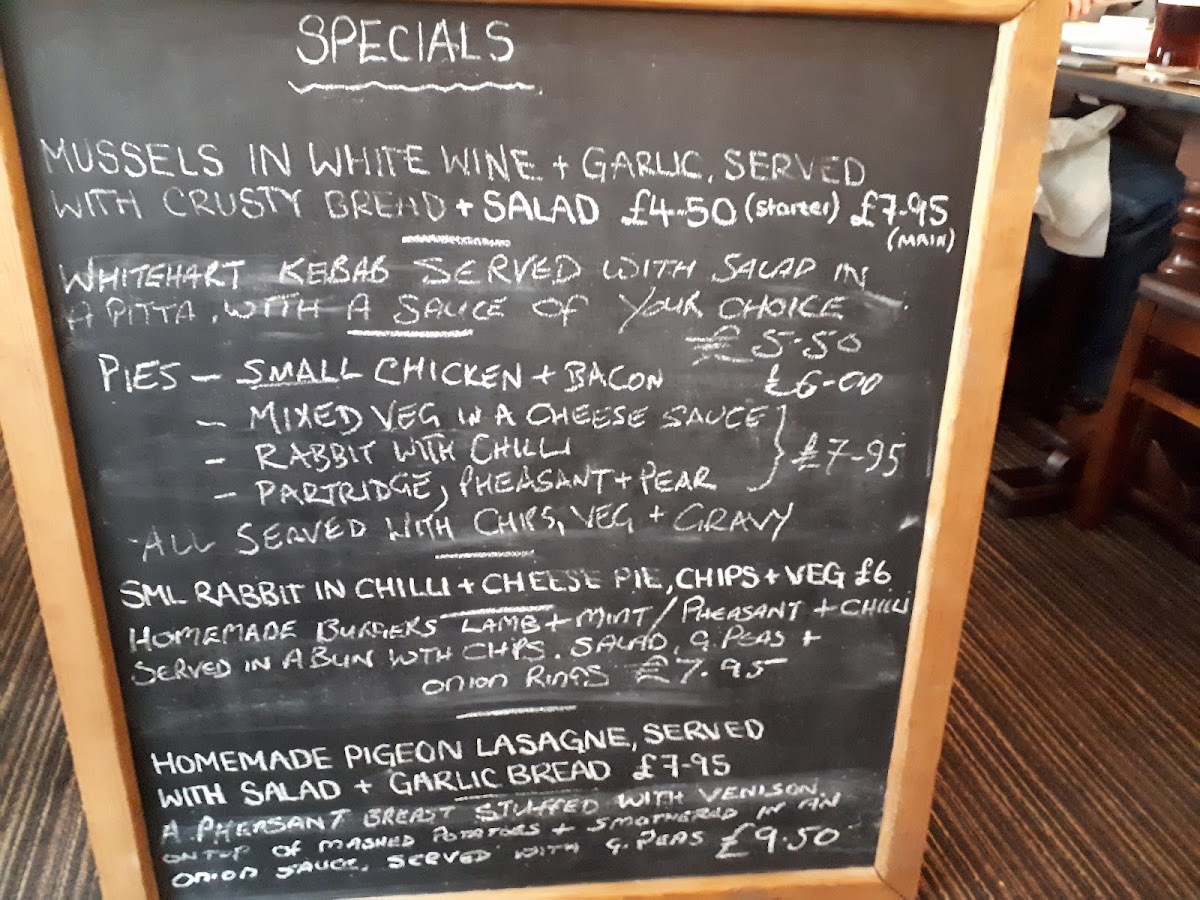 SPECIALS
MUSSELS IN WHITE WINE + GARLIC, SERVED
WITH CRUSTY BREAD + SALAD £4-50 (starter) £7-95
(MAIN)
WHITEHART KEBAB SERVED WITH SALAD IN
A PITTA, WITH A SAUCE OF YOUR CHOICE
£5-50
PIES - SMALL CHICKEN + BACON £6-00
- MIXED VEG IN A CHEESE SAUCE
- RABBIT WITH CHILLI £7-95
- PARTRIDGE, PHEASANT + PEAR
-ALL SERVED WITH CHIPS, VEG + GRAVY
SML RABBIT IN CHILLI + CHEESE PIE, CHIPS + VEG £6
HOMEMADE BURGERS LAMB + MINT / PHEASANT + CHILLI
SERVED IN A BUN WITH CHIPS. SALAD, G. PEAS +
ONION RINGS £7.95
HOMEMADE PIGEON LASAGNE, SERVED
WITH SALAD + GARLIC BREAD £7-95
A PHEASANT BREAST STUFFED WITH VENISON.
ONTOP OF MASHED POTATOES + SMOTHERED IN AN
ONION SAUCE, SERVED WITH G. PEAS £9.50